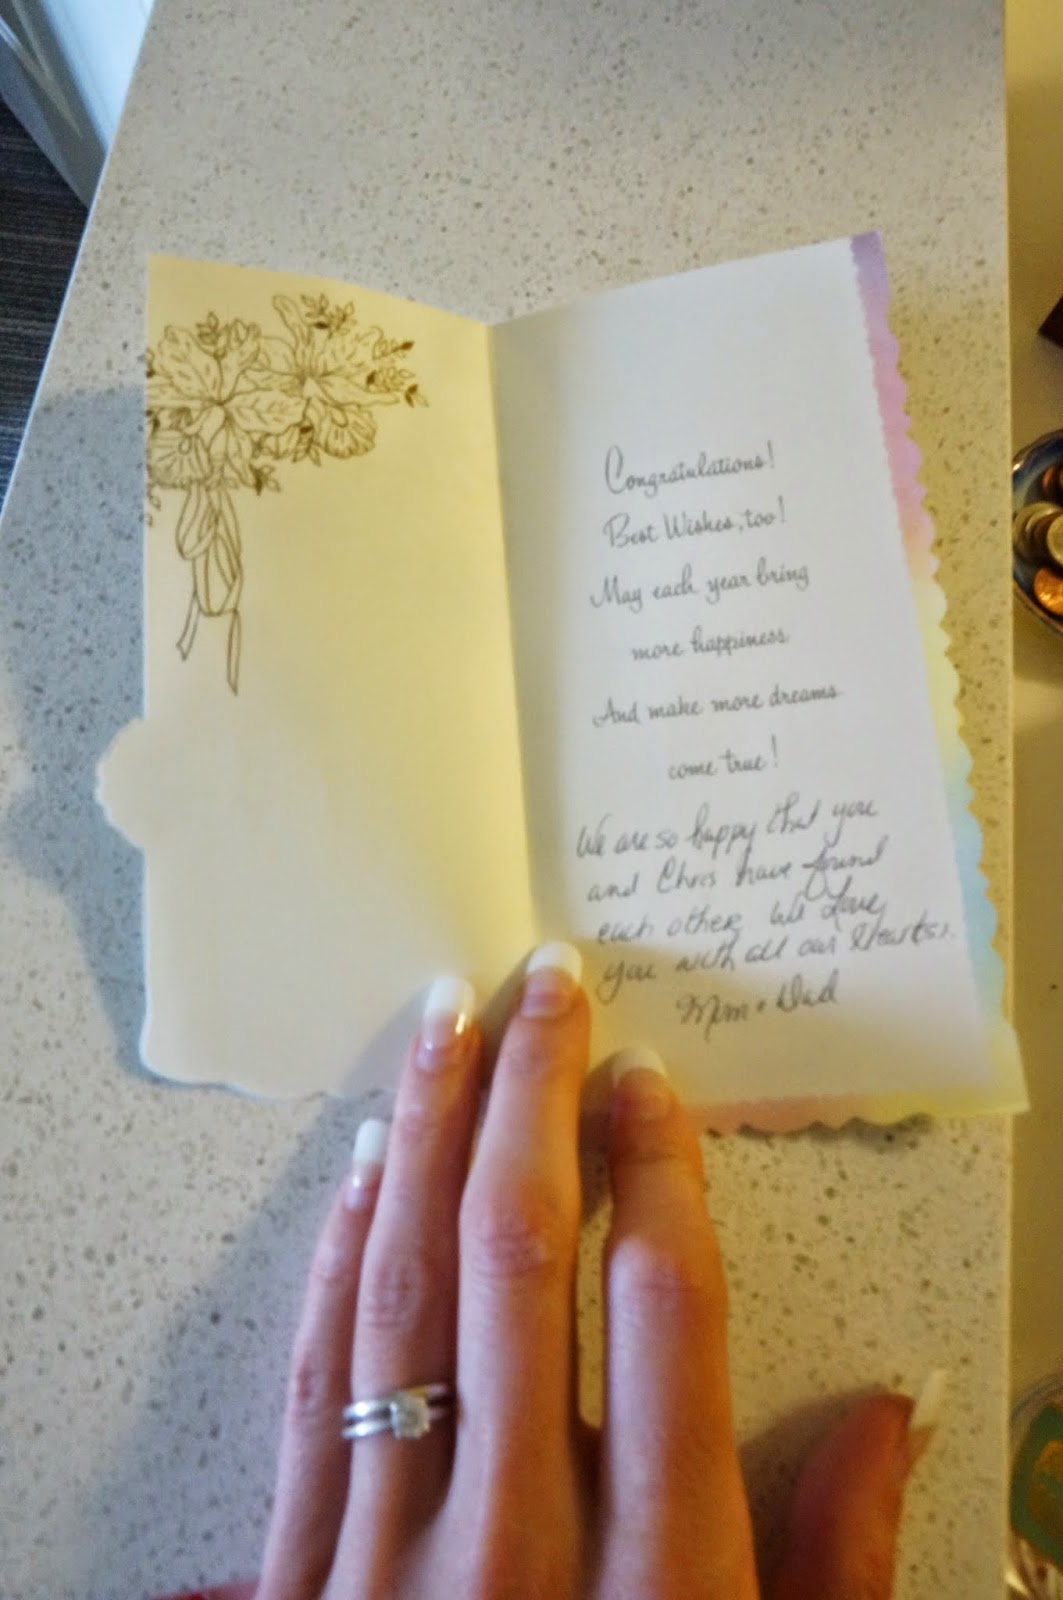 Congratulations!
Best Wishes, too!
May each year bring
more happiness
And make more dreams
come true!
We are so happy that you
and Chris have found
each other. We Love
you with all our Hearts.
Mom + Dad